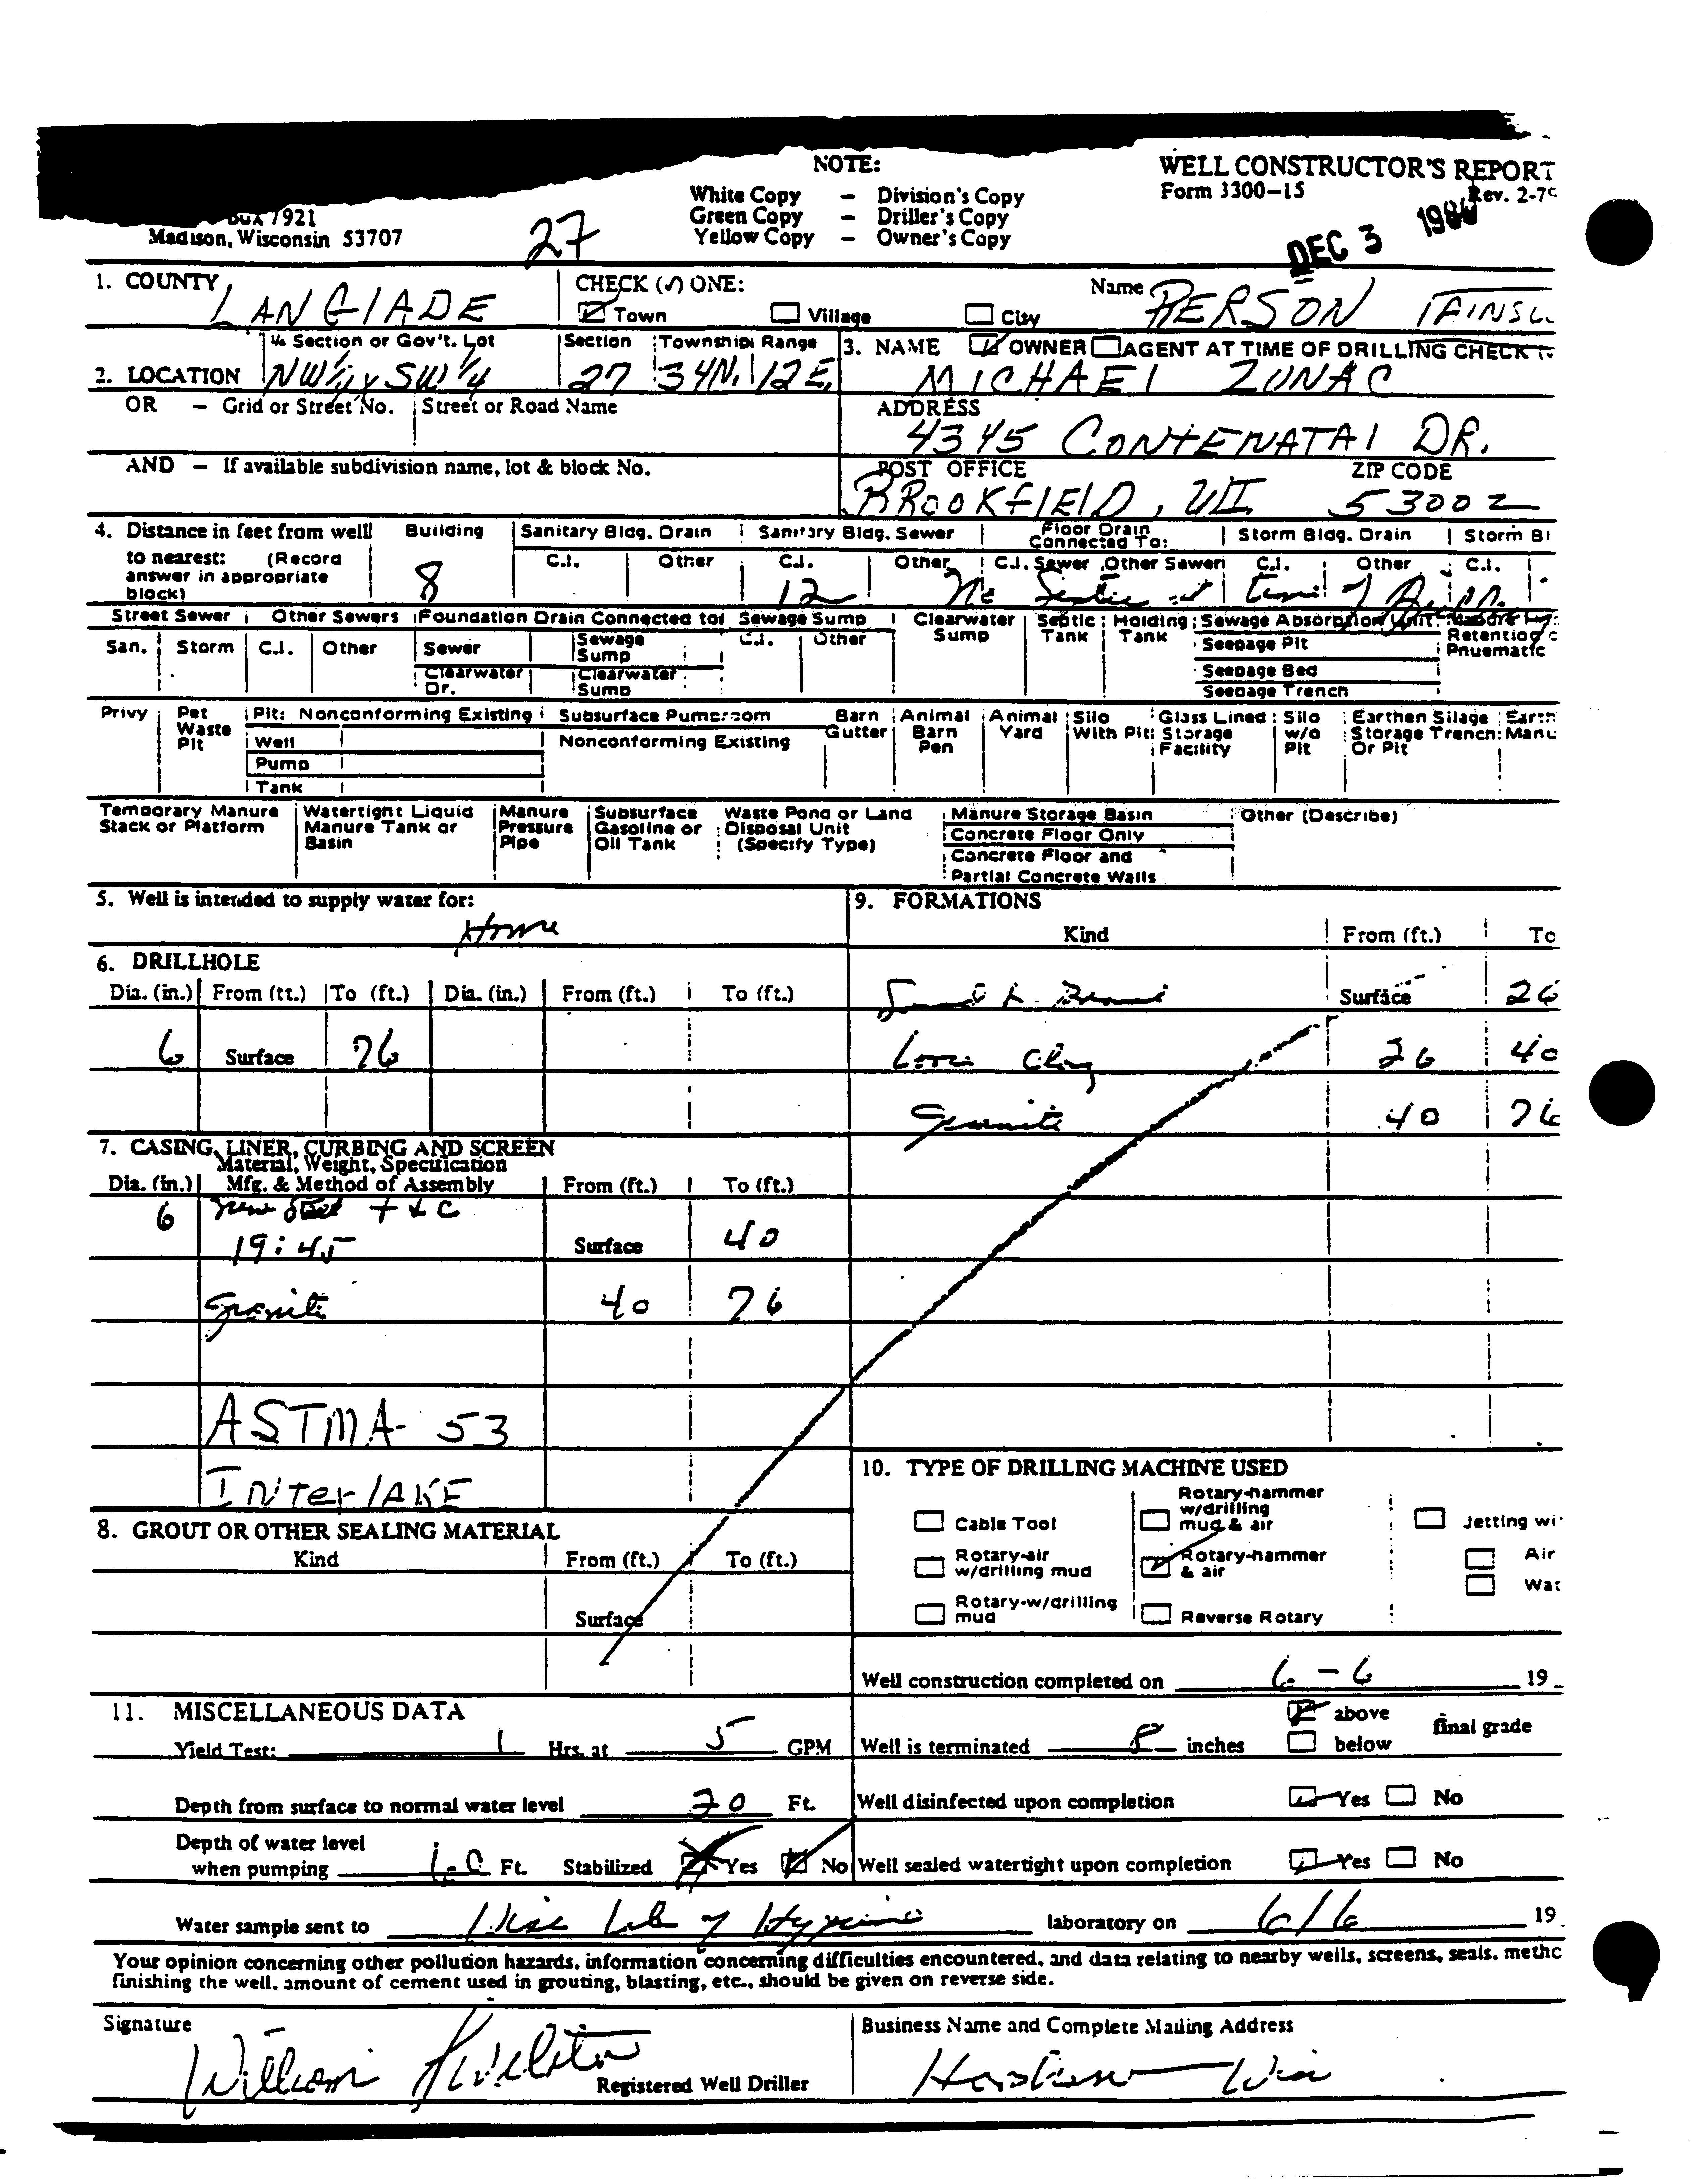 NOTE:
WELL CONSTRUCTOR'S REPORT
White Copy – Division's Copy
Form 3300-15 Rev. 2-79
Green Copy – Driller's Copy
Yellow Copy – Owner's Copy
Box 7921
Madison, Wisconsin 53707
27
DEC 3 1980
1. COUNTY LANGLADE
CHECK (✓) ONE:
☑ Town ☐ Village ☐ City
Name PIERSON
2. LOCATION
¼ Section or Gov't. Lot Section Township Range
NW¼ SW¼ 27 34N. 12E.
3. NAME ☑ OWNER ☐ AGENT AT TIME OF DRILLING CHECK
MICHAEL ZUNAC
OR – Grid or Street No. Street or Road Name
ADDRESS
4345 CONTENATAL DR.
AND – If available subdivision name, lot & block No.
POST OFFICE ZIP CODE
BROOKFIELD, WI. 53002
4. Distance in feet from well to nearest: (Record answer in appropriate block)
Building Sanitary Bldg. Drain Sanitary Bldg. Sewer Floor Drain Connected To: Storm Bldg. Drain Storm Bl
C.I. Other C.I. Other C.I. Sewer Other Sewer C.I. Other C.I.
8 12 No Septic at time of
Street Sewer Other Sewers Foundation Drain Connected to: Sewage Sump Clearwater Sump Septic Tank Holding Tank Sewage Absorption Unit
San. Storm C.I. Other Sewer Sewage Sump C.I. Other Seepage Pit Retention Pnuematic
Clearwater Dr. Clearwater Sump Seepage Bed
Seepage Trench
Privy Pet Waste Pit Pit: Nonconforming Existing Subsurface Pumproom Barn Gutter Animal Barn Pen Animal Yard Silo With Pit Glass Lined Storage Facility Silo w/o Pit Earthen Silage Storage Trench Or Pit Earth Manu
Well Nonconforming Existing
Pump
Tank
Temporary Manure Stack or Platform Watertight Liquid Manure Tank or Basin Manure Pressure Pipe Subsurface Gasoline or Oil Tank Waste Pond or Land Disposal Unit (Specify Type) Manure Storage Basin Other (Describe)
Concrete Floor Only
Concrete Floor and Partial Concrete Walls
5. Well is intended to supply water for:
Home
6. DRILLHOLE
Dia. (in.) From (ft.) To (ft.) Dia. (in.) From (ft.) To (ft.)
6 Surface 76
7. CASING, LINER, CURBING AND SCREEN
Material, Weight, Specification
Dia. (in.) Mfg. & Method of Assembly From (ft.) To (ft.)
6 New Steel T & C
19:45 Surface 40
Granite 40 76
ASTMA-53
INTERLAKE
8. GROUT OR OTHER SEALING MATERIAL
Kind From (ft.) To (ft.)
Surface
9. FORMATIONS
Kind From (ft.) To
Surface 26
Clay 26 40
Granite 40 76
10. TYPE OF DRILLING MACHINE USED
☐ Cable Tool ☐ Rotary-hammer w/drilling mud & air ☐ Jetting wi
☐ Rotary-air w/drilling mud ☑ Rotary-hammer & air ☐ Air
☐ Wat
☐ Rotary-w/drilling mud ☐ Reverse Rotary
Well construction completed on 6-6 19
11. MISCELLANEOUS DATA
Yield Test: 1 Hrs. at 5 GPM
Well is terminated 8 inches ☑ above ☐ below final grade
Depth from surface to normal water level 20 Ft.
Well disinfected upon completion ☑ Yes ☐ No
Depth of water level when pumping 60 Ft. Stabilized ☑ Yes ☑ No
Well sealed watertight upon completion ☑ Yes ☐ No
Water sample sent to Wisc Lab of Hygiene laboratory on 6/6 19
Your opinion concerning other pollution hazards, information concerning difficulties encountered, and data relating to nearby wells, screens, seals, metho
finishing the well, amount of cement used in grouting, blasting, etc., should be given on reverse side.
Signature
William
Registered Well Driller
Business Name and Complete Mailing Address